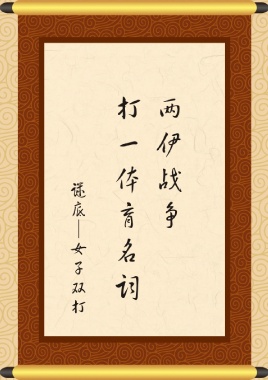 两伊战争
打一体育名词
谜底——女子双打